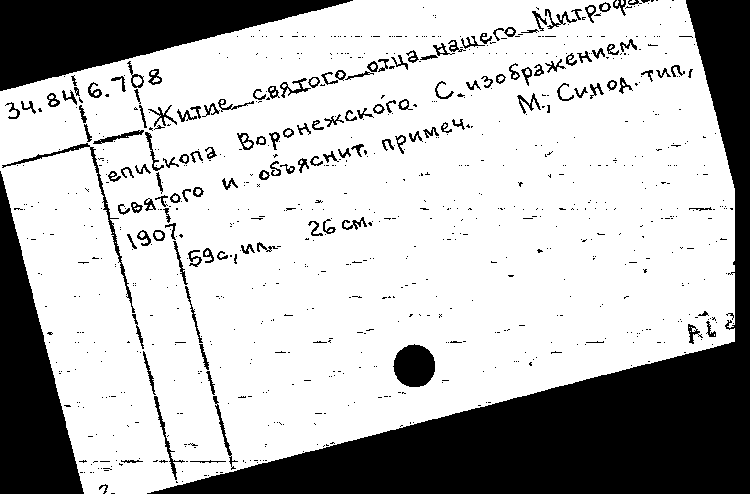 34.84 6.708
Житие святого отца нашего
епископа Воронежского. С изображением
святого и объяснит. примеч. М., Синод. тип.,
1907.
59 с., ил. 26 см.